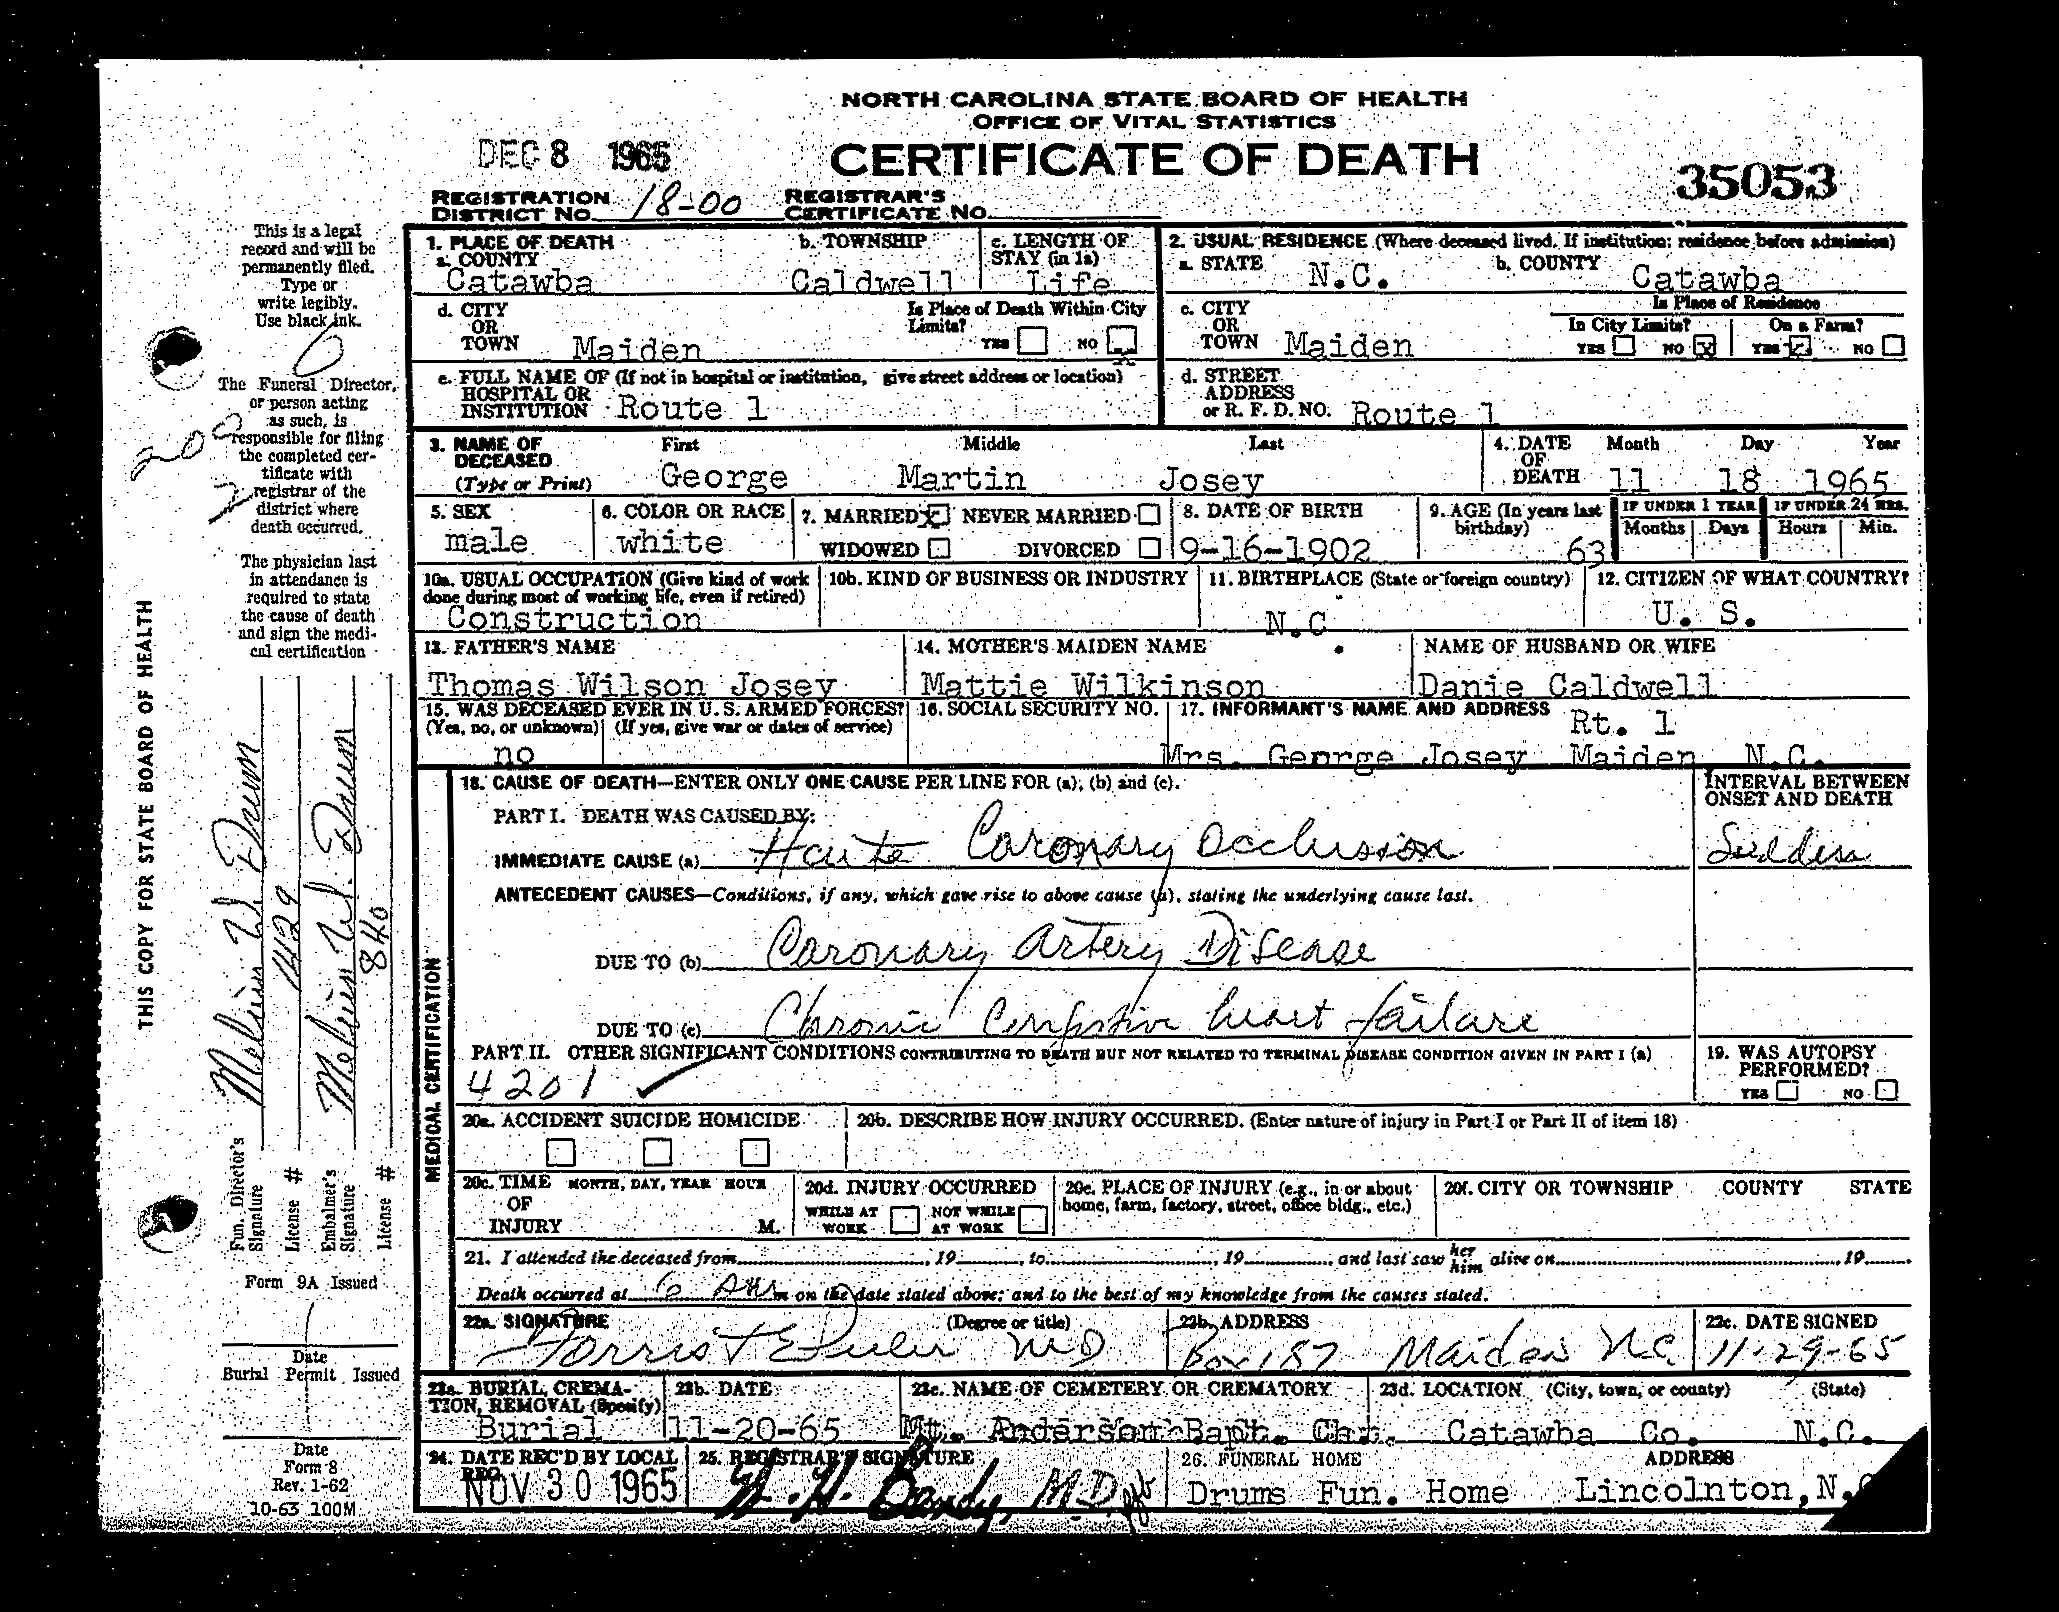 NORTH CAROLINA STATE BOARD OF HEALTH
OFFICE OF VITAL STATISTICS
DEC 8 1965
CERTIFICATE OF DEATH
35053
REGISTRATION DISTRICT NO. 18-00
REGISTRAR'S CERTIFICATE NO.
This is a legal
record and will be
permanently filed.
Type or
write legibly.
Use black ink.
The Funeral Director,
or person acting
as such, is
responsible for filing
the completed cer-
tificate with
registrar of the
district where
death occurred.
The physician last
in attendance is
required to state
the cause of death
and sign the medi-
cal certification
THIS COPY FOR STATE BOARD OF HEALTH
Fun. Director's Signature Melvin W Drum
License # 1429
Embalmer's Signature Melvin W. Drum
License # 840
Form 9A Issued
Date
Burial Permit Issued
Date
Form 8
Rev. 1-62
10-63 100M
1. PLACE OF DEATH
a. COUNTY Catawba
b. TOWNSHIP Caldwell
c. LENGTH OF STAY (in 1a) Life
2. USUAL RESIDENCE (Where deceased lived. If institution: residence before admission)
a. STATE N.C.
b. COUNTY Catawba
d. CITY OR TOWN Maiden
Is Place of Death Within City Limits? YES NO X
c. CITY OR TOWN Maiden
Is Place of Residence
In City Limits? YES NO X
On a Farm? YES NO
e. FULL NAME OF (If not in hospital or institution, give street address or location) HOSPITAL OR INSTITUTION Route 1
d. STREET ADDRESS or R. F. D. NO. Route 1
3. NAME OF DECEASED (Type or Print)
First George
Middle Martin
Last Josey
4. DATE OF DEATH Month 11 Day 18 Year 1965
5. SEX male
6. COLOR OR RACE white
7. MARRIED X NEVER MARRIED
WIDOWED DIVORCED
8. DATE OF BIRTH 9-16-1902
9. AGE (In years last birthday) 63
IF UNDER 1 YEAR Months Days
IF UNDER 24 HRS. Hours Min.
10a. USUAL OCCUPATION (Give kind of work done during most of working life, even if retired) Construction
10b. KIND OF BUSINESS OR INDUSTRY
11. BIRTHPLACE (State or foreign country) N.C.
12. CITIZEN OF WHAT COUNTRY? U. S.
13. FATHER'S NAME Thomas Wilson Josey
14. MOTHER'S MAIDEN NAME Mattie Wilkinson
NAME OF HUSBAND OR WIFE Danie Caldwell
15. WAS DECEASED EVER IN U. S. ARMED FORCES? (Yes, no, or unknown) (If yes, give war or dates of service) no
16. SOCIAL SECURITY NO.
17. INFORMANT'S NAME AND ADDRESS Rt. 1
Mrs. George Josey Maiden N.C.
MEDICAL CERTIFICATION
18. CAUSE OF DEATH—ENTER ONLY ONE CAUSE PER LINE FOR (a), (b) and (c).
INTERVAL BETWEEN ONSET AND DEATH
PART I. DEATH WAS CAUSED BY:
IMMEDIATE CAUSE (a) Acute Coronary Occlusion Sudden
ANTECEDENT CAUSES—Conditions, if any, which gave rise to above cause (a), stating the underlying cause last.
DUE TO (b) Coronary Artery Disease
DUE TO (c) Chronic Congestive heart failure
PART II. OTHER SIGNIFICANT CONDITIONS CONTRIBUTING TO DEATH BUT NOT RELATED TO TERMINAL DISEASE CONDITION GIVEN IN PART I (a)
4201
19. WAS AUTOPSY PERFORMED? YES NO
20a. ACCIDENT SUICIDE HOMICIDE
20b. DESCRIBE HOW INJURY OCCURRED. (Enter nature of injury in Part I or Part II of item 18)
20c. TIME OF INJURY MONTH, DAY, YEAR HOUR M.
20d. INJURY OCCURRED WHILE AT WORK NOT WHILE AT WORK
20e. PLACE OF INJURY (e.g., in or about home, farm, factory, street, office bldg., etc.)
20f. CITY OR TOWNSHIP COUNTY STATE
21. I attended the deceased from , 19 , to , 19 , and last saw her him alive on , 19 .
Death occurred at 6 AM m on the date stated above; and to the best of my knowledge from the causes stated.
22a. SIGNATURE (Degree or title) MD
22b. ADDRESS Box 187 Maiden N.C.
22c. DATE SIGNED 11-29-65
23a. BURIAL, CREMATION, REMOVAL (Specify) Burial
23b. DATE 11-20-65
23c. NAME OF CEMETERY OR CREMATORY Mt. Anderson Bapt. Ch.
23d. LOCATION (City, town, or county) (State) Catawba Co. N.C.
24. DATE REC'D BY LOCAL REG. NOV 30 1965
25. REGISTRAR'S SIGNATURE W. H. Bandy, M.D.
26. FUNERAL HOME ADDRESS
Drums Fun. Home Lincolnton, N.C